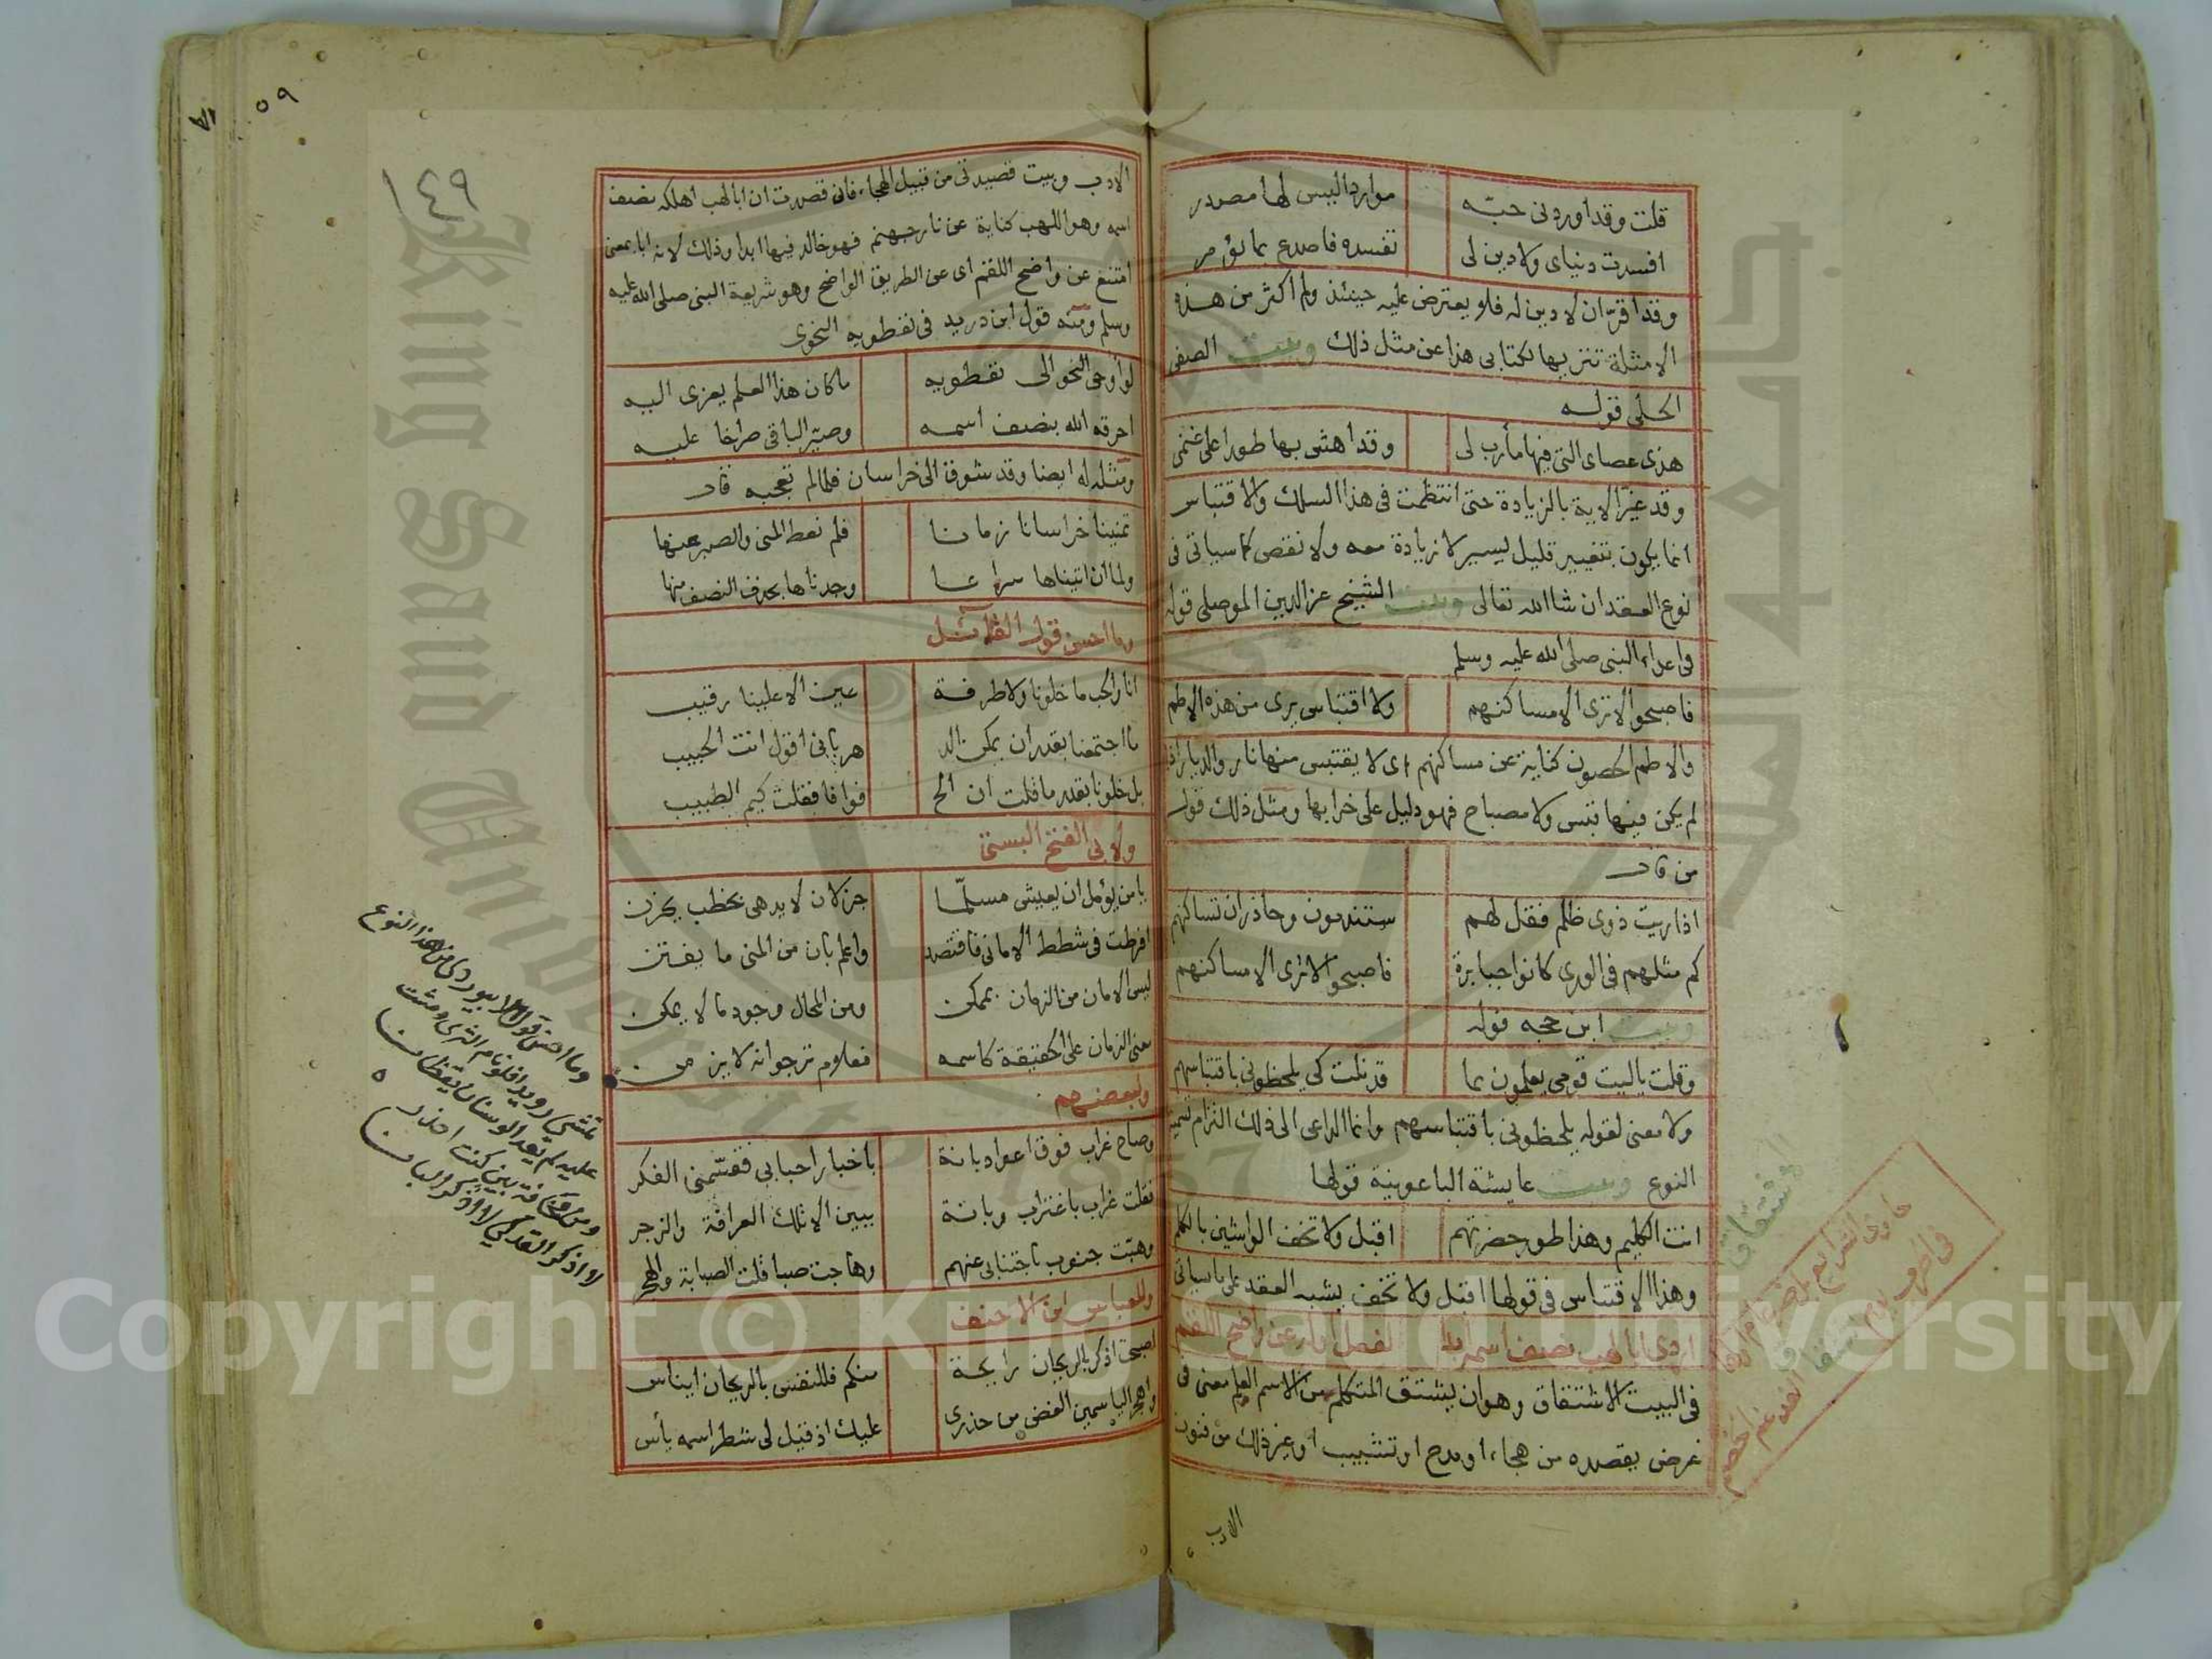 قلت وقد اوردنى حبّه موارد اليبس لها مصدر
افسدت دنياى ولا دين لى تفسده فاصدع بما تؤمر
وقد اقرّ ان لا دين له فلو يعترض عليه حينئذ ولم اكثر من هذه
الامثلة تنزيها لكتابى هذا عن مثل ذلك وبيت الصفى
الحلى قوله
هذى عصاى التى فيها مأرب لى وقد اهش بها طورا على غنمى
وقد غيّر الاية بالزيادة حتى انتظمت فى هذا السلك والاقتباس
انما يكون بتغيير قليل يسير لا زيادة معه ولا نقص كما سياتى فى
نوع العقد ان شا الله تعالى وبيت الشيخ عز الدين الموصلى قوله
فى اعداء النبى صلى الله عليه وسلم
فاصبحوا لا ترى الا مساكنهم ولا اقتباس يرى من هذه الاطم
والاطم الحصون كناية عن مساكنهم اى لا يقتبس منها نار والديار اذا
لم يكن فيها قبس ولا مصباح فهو دليل على خرابها ومثل ذلك قول
من قال
اذا ريت ذوى ظلم فقل لهم ستندمون وحاذر ان تساكنهم
كم مثلهم فى الورى كانوا جبابرة فاصبحوا لا ترى الا مساكنهم
وبيت ابن حجه قوله
وقلت ياليت قومى يعلمون بما قد نلت كى يلحظونى باقتباسهم
ولا معنى لقوله يلحظونى باقتباسهم وانما الداعى الى ذلك التزام تسمية
النوع وبيت عايشة الباعونية قولها
انت الكليم وهذا طور حضرتهم اقبل ولا تخف الواشين بالكلم
وهذا الاقتباس فى قولها اقبل ولا تخف يشبه العقد على ما سياتى
ابا لهب بنصف اسم عن واضح اللقم
فى البيت الاشتقاق وهو ان يشتق المتكلم من الاسم العلم معنى فى
غرض يقصده من هجاء او مدح او تشبيب او غير ذلك من فنون
الادب
الاشتقاق
٥٩
١٤٩
الادب وبيت قصيدتى من قبيل الهجاء فانى قصدت ان ابا لهب اهلكه نصف
اسمه وهو اللهب كناية عن نار جهنم فهو خالد فيها ابدا وذلك لانه ابا بمعنى
امتنع عن واضح اللقم اى عن الطريق الواضح وهو شريعة النبى صلى الله عليه
وسلم ومنه قول ابن دريد فى نفطويه النحوى
لو أوحى النحو الى نفطويه ما كان هذا العلم يعزى اليه
احرقه الله بنصف اسمه وصيّر الباقى صراخا عليه
ومثله له ايضا وقد شوق الى خراسان فلما لم تعجبه قال
تمنينا خراسانا زمانا فلم نعط المنى والصبر عنها
ولما ان اتيناها سراعا وجدناها بحذف النصف منها
وما احسن قول القائل
انا والحب ما خلونا ولا طرفة عين الا علينا رقيب
ما اجتمعنا بقدر ان يمكن الد هر بانى اقول انت الحبيب
بل خلونا بقدر ما قلت ان الح فوافا فقلت كيم الطبيب
ولابى الفتح البستى
يا من يؤمل ان يعيش مسلّما جزلان لا يدهى بخطب يحزن
افرطت فى شطط الامانى فاقتصد واعلم بان من المنى ما يفتن
ليس الامان من الزمان بممكن ومن المحال وجود ما لا يمكن
معنى الزمان على الحقيقة كاسمه فعلام ترجو انه لا يزمن
ولبعضهم
وصاح غراب فوق اعواد بانة باخبار احبابى فقسّمنى الفكر
فقلت غراب باغتراب وبانة ببين الا تلك العرافة والزجر
وهبّت جنوب باجتنابى عنهم وهاجت صبا قلت الصبابة والهجر
وللعباس ابن الاحنف
اصبحت اذكر بالريحان رايحة منكم فللنفس بالريحان ايناس
واهجر الياسمين الغض من حذرى عليك اذ قيل لى شطر اسمه يأس
وما احسن قول الابيوردى من هذا النوع
Copyright © King Saud University
King Saud University
1957